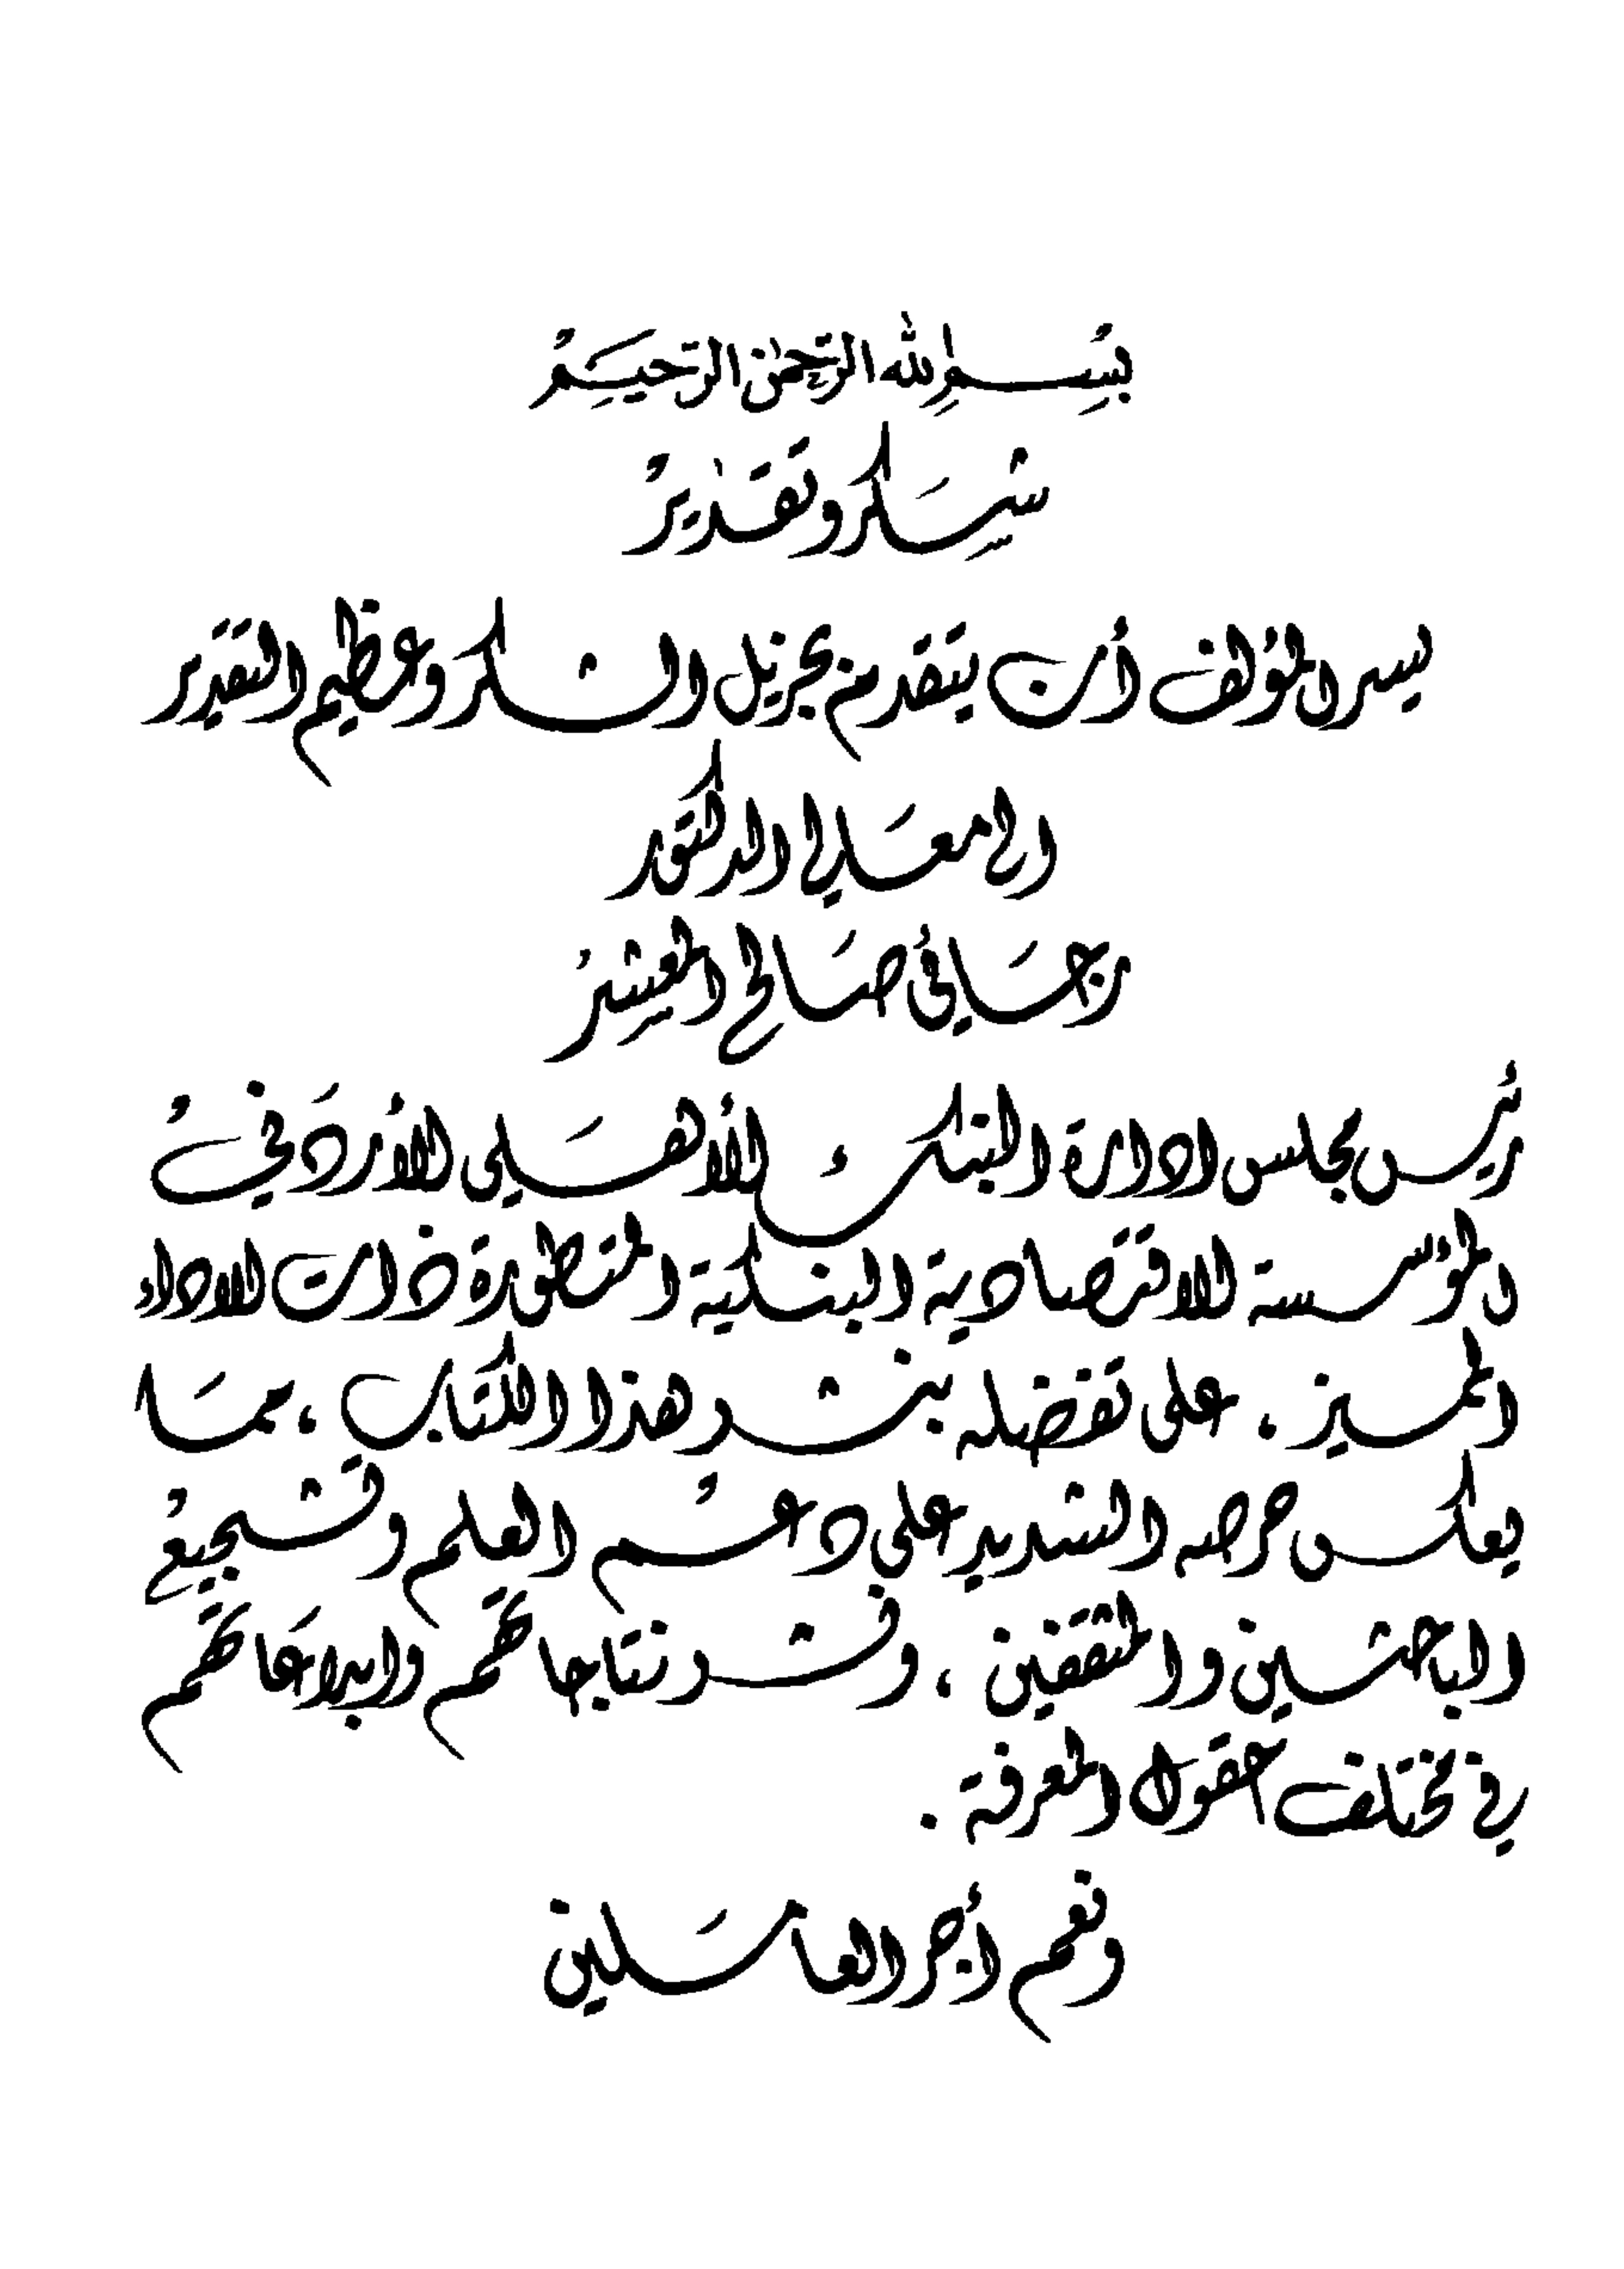 بسم الله الرحمن الرحيم
شكر وتقدير
يسر المؤلف أن يتقدم بجزيل الشكر وعظيم التقدير
الى معالي الدكتور
رجائي صالح المعشر
رئيس مجلس ادارة البنك الأهلي الأردني
المؤسسة الاقتصادية البنكية المتطورة ذات الاداء
المميز . على تفضله بنشر هذا الكتاب ، مما
يعكس حرصه الشديد على دعم العلم وتشجيع
الباحثين والمثقفين ، ونشر نتاجاتهم وابداعاتهم
في مختلف حقول المعرفة .
ونعم أجر العاملين